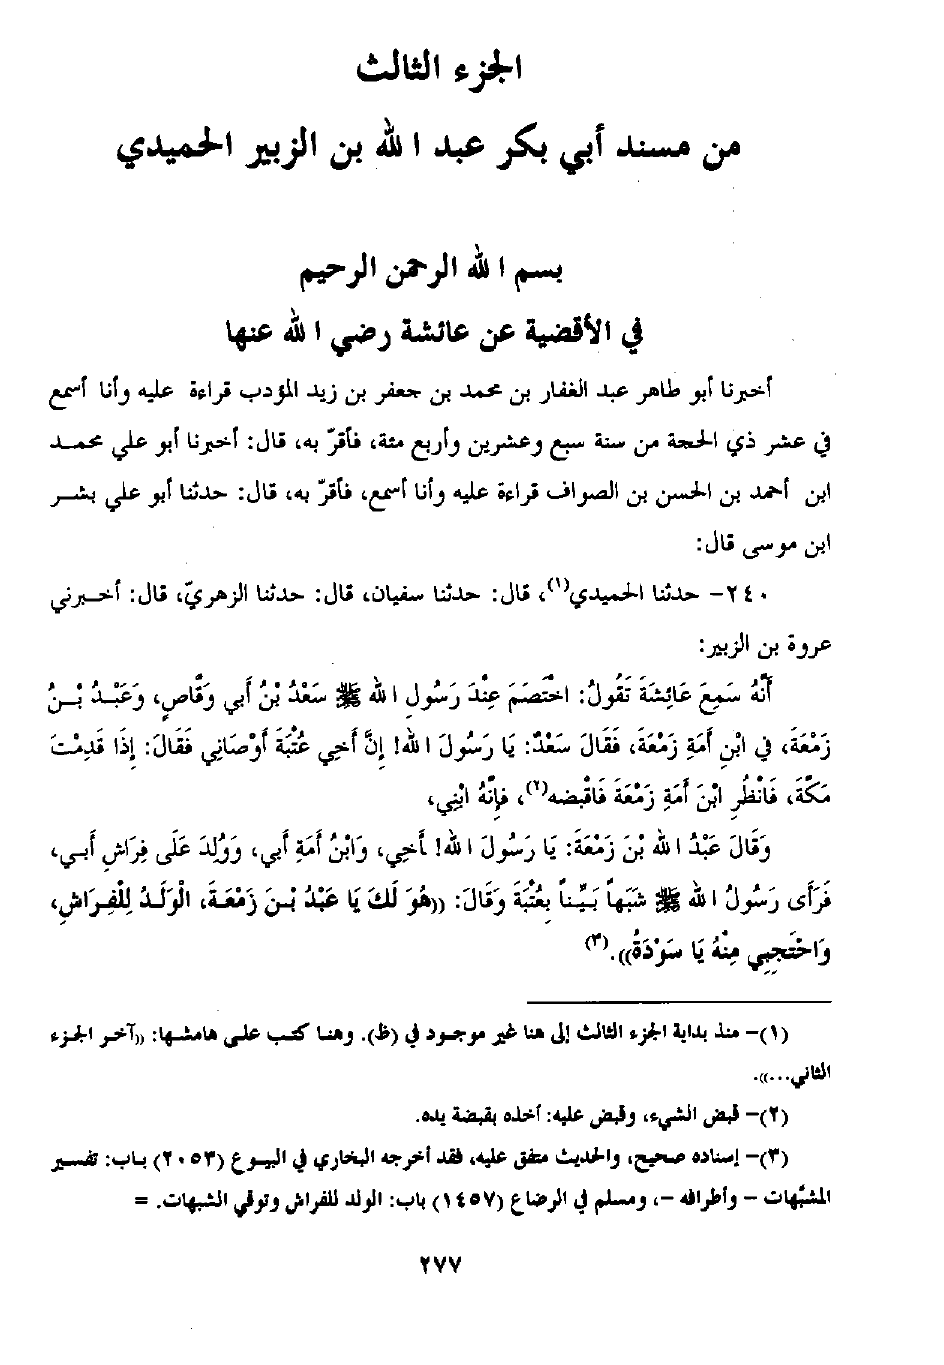 الجزء الثالث
من مسند أبي بكر عبد الله بن الزبير الحميدي
بسم الله الرحمن الرحيم
في الأقضية عن عائشة رضي الله عنها
أخبرنا أبو طاهر عبد الغفار بن محمد بن جعفر بن زيد المؤدب قراءة عليه وأنا أسمع
في عشر ذي الحجة من سنة سبع وعشرين وأربع مئة، فأقرّ به، قال: أخبرنا أبو علي محمد
ابن أحمد بن الحسن بن الصواف قراءة عليه وأنا أسمع، فأقرّ به، قال: حدثنا أبو علي بشر
ابن موسى قال:
٢٤٠- حدثنا الحميدي(١)، قال: حدثنا سفيان، قال: حدثنا الزهريّ، قال: أخبرني
عروة بن الزبير:
أَنَّهُ سَمِعَ عَائِشَةَ تَقُولُ: اخْتَصَمَ عِنْدَ رَسُولِ اللهِ ﷺ سَعْدُ بْنُ أَبِي وَقَّاصٍ، وَعَبْدُ بْنُ
زَمْعَةَ، فِي ابْنِ أَمَةِ زَمْعَةَ، فَقَالَ سَعْدٌ: يَا رَسُولَ اللهِ! إِنَّ أَخِي عُتْبَةَ أَوْصَانِي فَقَالَ: إِذَا قَدِمْتَ
مَكَّةَ، فَانْظُرِ ابْنَ أَمَةِ زَمْعَةَ فَاقْبِضه(٢)، فَإِنَّهُ ابْنِي،
وَقَالَ عَبْدُ اللهِ بْنَ زَمْعَةَ: يَا رَسُولَ اللهِ! أَخِي، وَابْنُ أَمَةِ أَبِي، وَوُلِدَ عَلَى فِرَاشِ أَبِي،
فَرَأَى رَسُولُ اللهِ ﷺ شَبَهاً بَيِّناً بِعُتْبَةَ وَقَالَ: ((هُوَ لَكَ يَا عَبْدُ بْنَ زَمْعَةَ، الْوَلَدُ لِلْفِرَاشِ،
وَاحْتَجِبِي مِنْهُ يَا سَوْدَةُ)).(٣)
(١)- منذ بداية الجزء الثالث إلى هنا غير موجود في (ظ). وهنا كتب على هامشها: ((آخر الجزء
الثاني...)).
(٢)- قبض الشيء، وقبض عليه: أخذه بقبضة يده.
(٣)- إسناده صحيح، والحديث متفق عليه، فقد أخرجه البخاري في البيوع (٢٠٥٣) باب: تفسير
المشبّهات - وأطرافه -، ومسلم في الرضاع (١٤٥٧) باب: الولد للفراش وتوقي الشبهات. =
٢٧٧